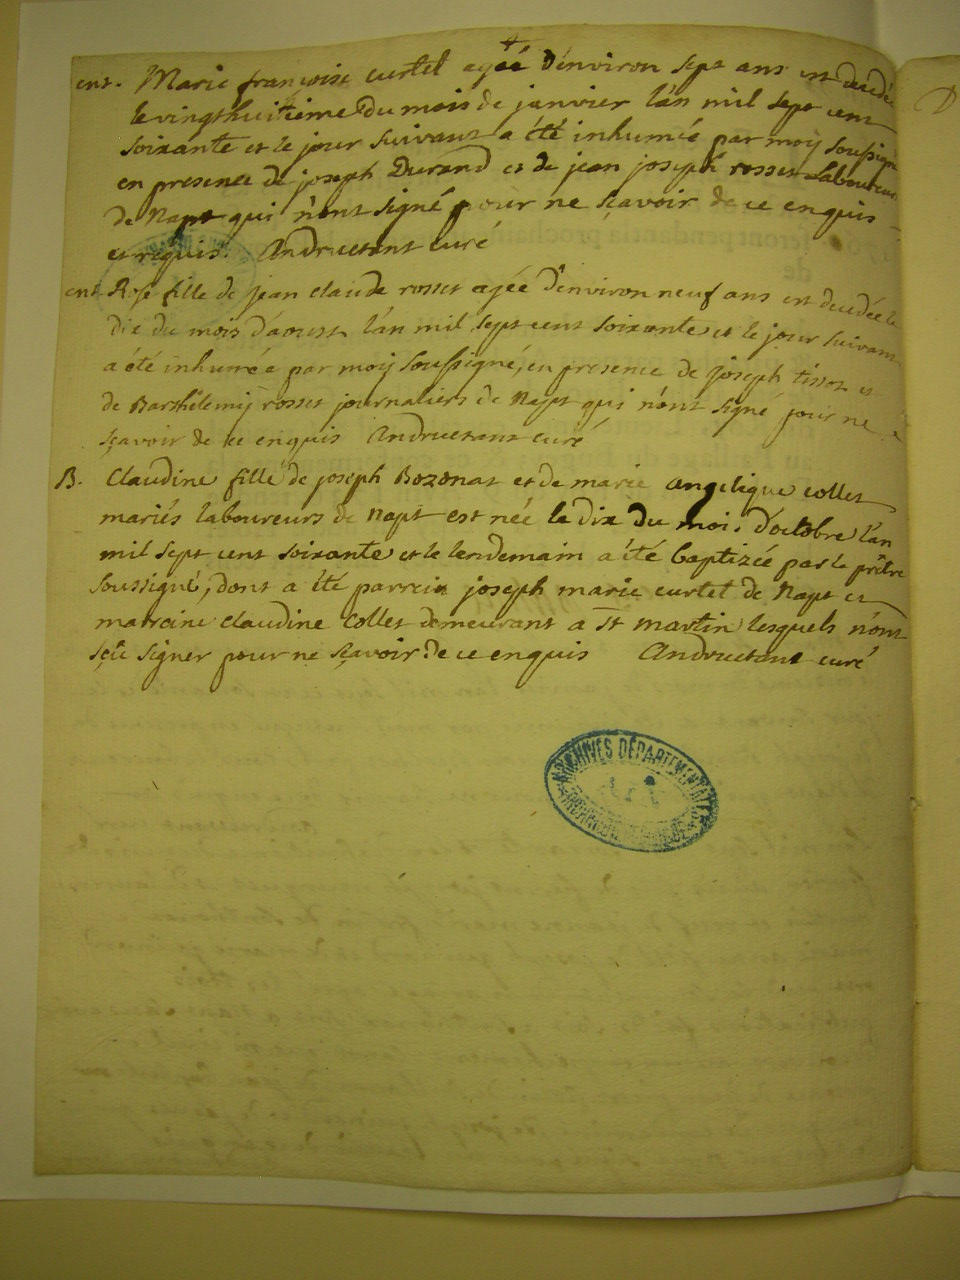 ent. Marie françoise curtet agéé d'environ sept ans est decedée
le vingthuitieme du mois de janvier l'an mil sept cent
soixante et le jour suivant a été inhumée par moy soussigné
en presence de joseph Durand et de jean joseph rosset Laboureurs
de Napt qui n'ont signé pour ne sçavoir de ce enquis
et requis. Andructant curé
ent Rose fille de jean claude rosset agée d'environ neuf ans est decedée le
dix du mois d'aoust l'an mil sept cent soixante et le jour suivant
a été inhumée par moy soussigné, en presence de joseph tissot et
de Barthelemy rosset journaliers de Napt qui n'ont signé pour ne
sçavoir de ce enquis Andructant curé
B. Claudine fille de joseph Bozonat et de marie angelique collet
mariés laboureurs de Napt est née le dix du mois d'octobre l'an
mil sept cent soixante et le lendemain a été baptizée par le prêtre
soussigné, dont a été parrein joseph marie curtet de Napt et
marreine claudine Collet demeurant a St martin lesquels n'ont
sçû signer pour ne sçavoir de ce enquis Andructant curé
ARCHIVES DÉPARTEMENTALES